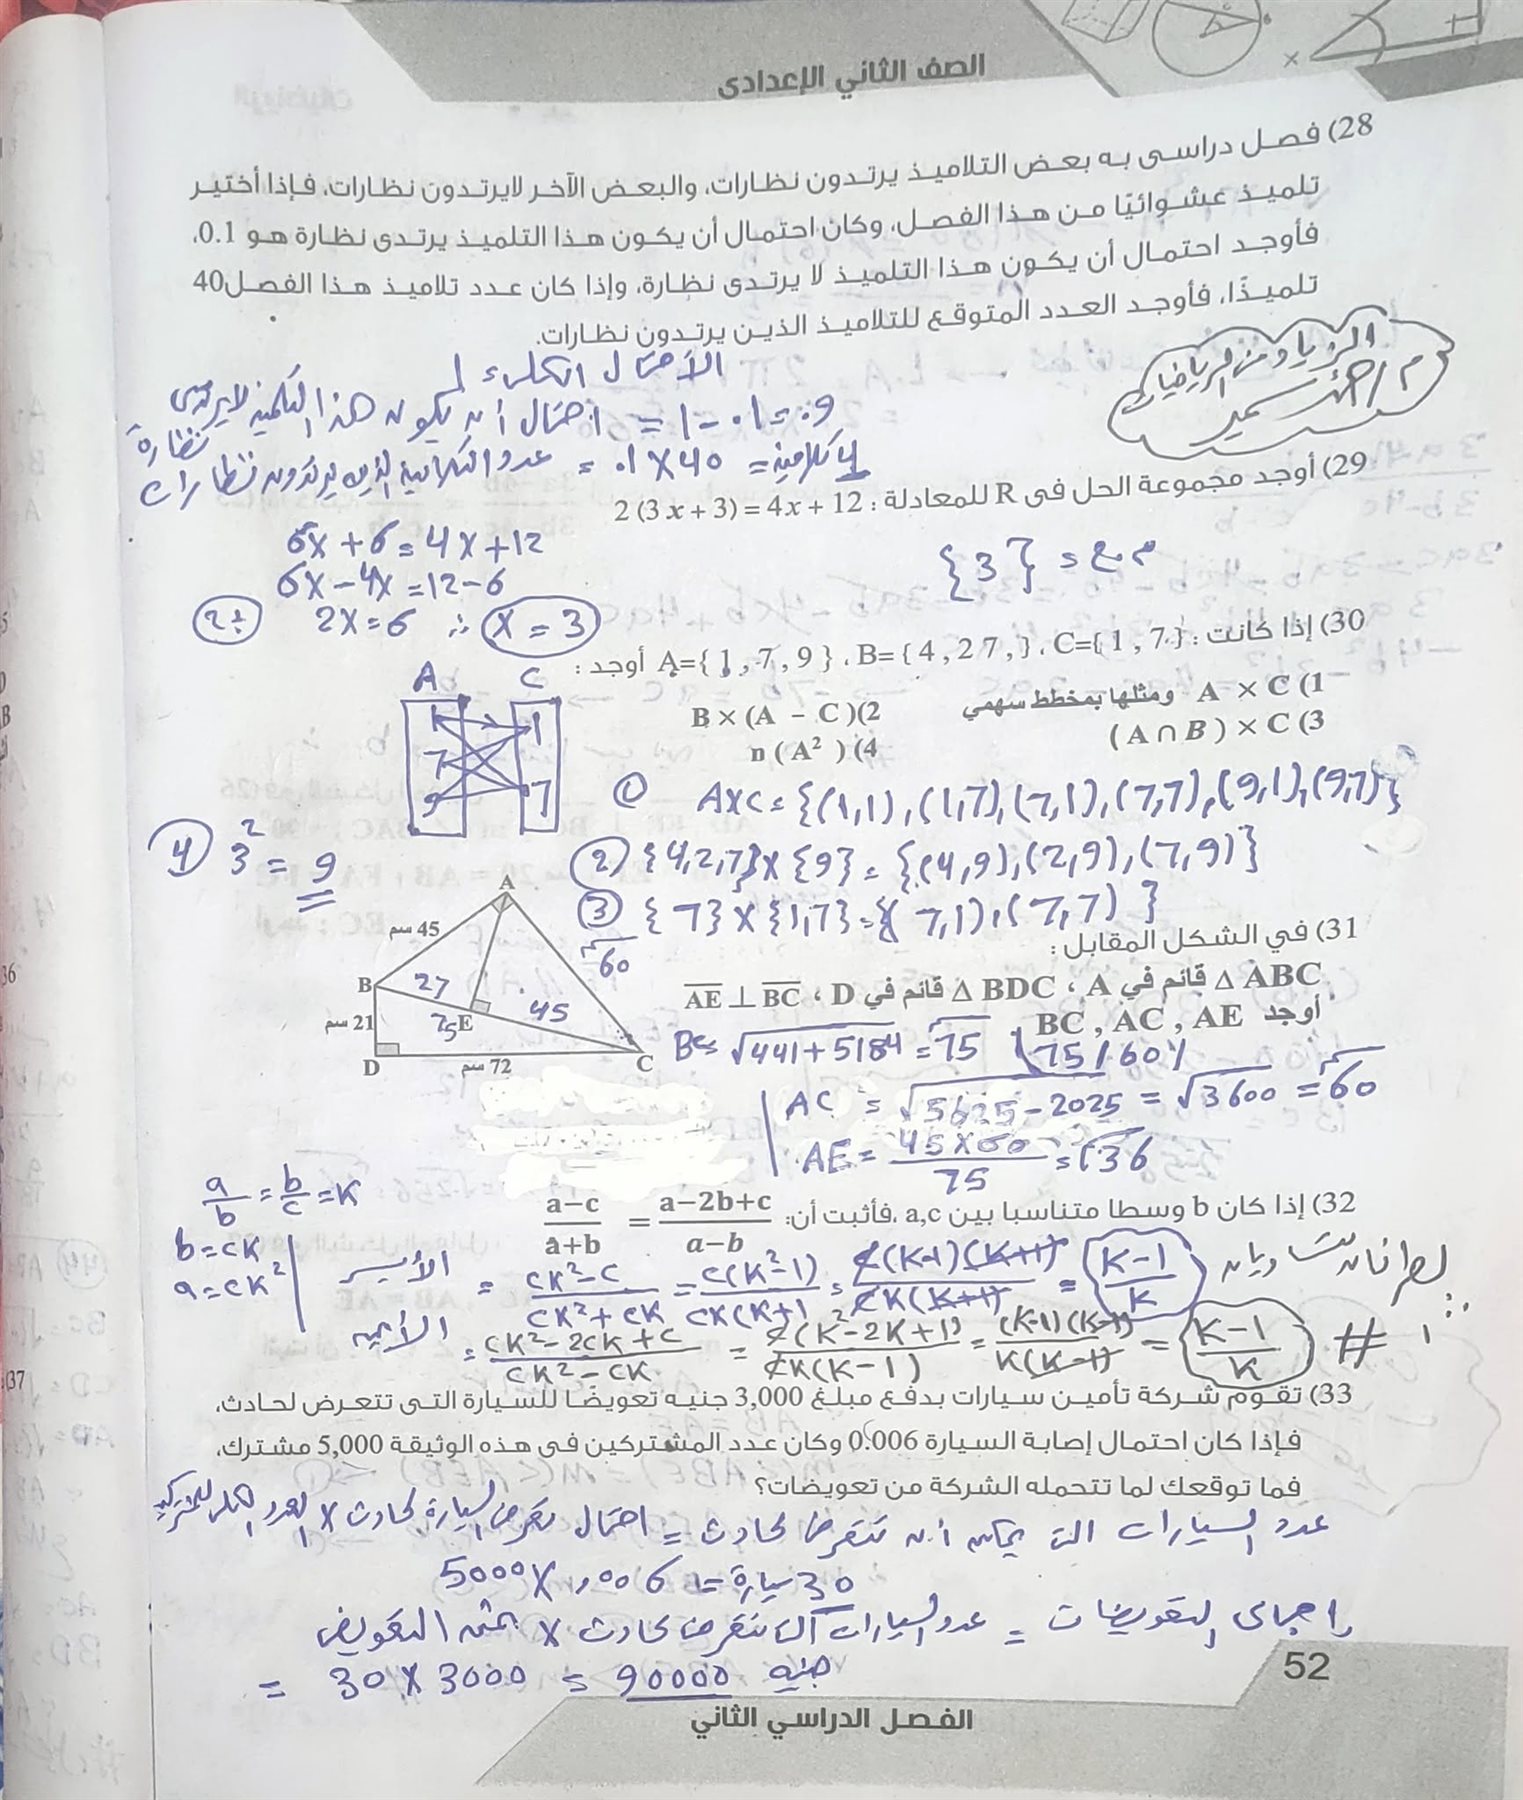 الصف الثاني الإعدادى
28) فصل دراسى به بعض التلاميذ يرتدون نظارات، والبعض الآخر لايرتدون نظارات، فإذا أختير
تلميذ عشوائيًا من هذا الفصل، وكان احتمال أن يكون هذا التلميذ يرتدى نظارة هو 0.1،
فأوجد احتمال أن يكون هذا التلميذ لا يرتدى نظارة، وإذا كان عدد تلاميذ هذا الفصل40
تلميذًا، فأوجد العدد المتوقع للتلاميذ الذين يرتدون نظارات.
م/ أحمد سمير
احتمال أن يكون هذا التلميذ لايرتدى نظارة = 1 - 0.1 = 0.9
عدد التلاميذ الذين يرتدون نظارات = 0.1 X 40 = 4 تلاميذ
29) أوجد مجموعة الحل فى R للمعادلة : 2 (3 x + 3) = 4x + 12
6x + 6 = 4x + 12
6x - 4x = 12 - 6
2÷ 2x = 6 ∴ x = 3
م.ح = {3}
30) إذا كانت : A={ 1 , 7 , 9 } ، B= { 4 , 2 7 , } ، C={ 1 , 7 } أوجد :
1) A × C ومثلها بمخطط سهمي
2) B × (A - C )
3) ( A ∩ B ) × C
4) n ( A² )
A C
1 1
7
9 7
① AXC = {(1,1),(1,7),(7,1),(7,7),(9,1),(9,7)}
② {4,2,7} X {9} = {(4,9),(2,9),(7,9)}
③ {7} X {1,7} = {(7,1),(7,7)}
④ 3² = 9
31) في الشكل المقابل :
△ ABC قائم في A ، △ BDC قائم في D ، AE ⊥ BC
أوجد BC , AC , AE
A
45 سم
60
B
27
45
75 E
21 سم
D
72 سم
C
BC = √441+5184 = 75
AC = √5625-2025 = √3600 = 60
AE = 45X60/75 = 36
32) إذا كان b وسطا متناسبا بين a,c ،فأثبت أن: a-c/a+b = a-2b+c/a-b
a/b = b/c = K
b = cK
a = cK²
الأيسر = cK²-c/cK²+cK = c(K²-1)/cK(K+1) = c(K-1)(K+1)/cK(K+1) = K-1/K
الأيمن = cK²-2cK+c/cK²-cK = c(K²-2K+1)/cK(K-1) = (K-1)(K-1)/K(K-1) = K-1/K #
∴ الطرفان متساويان
33) تقوم شركة تأمين سيارات بدفع مبلغ 3,000 جنيه تعويضًا للسيارة التى تتعرض لحادث،
فإذا كان احتمال إصابة السيارة 0.006 وكان عدد المشتركين فى هذه الوثيقة 5,000 مشترك،
فما توقعك لما تتحمله الشركة من تعويضات؟
عدد السيارات التى يمكن أن تتعرض لحادث = احتمال تعرض السيارة لحادث X العدد الكلى للمشتركين
5000 X 0.006 = 30 سيارة
إجمالى التعويضات = عدد السيارات التى تتعرض لحادث X التعويض
= 30 X 3000 = 90000 جنيه
52
الفصل الدراسي الثاني